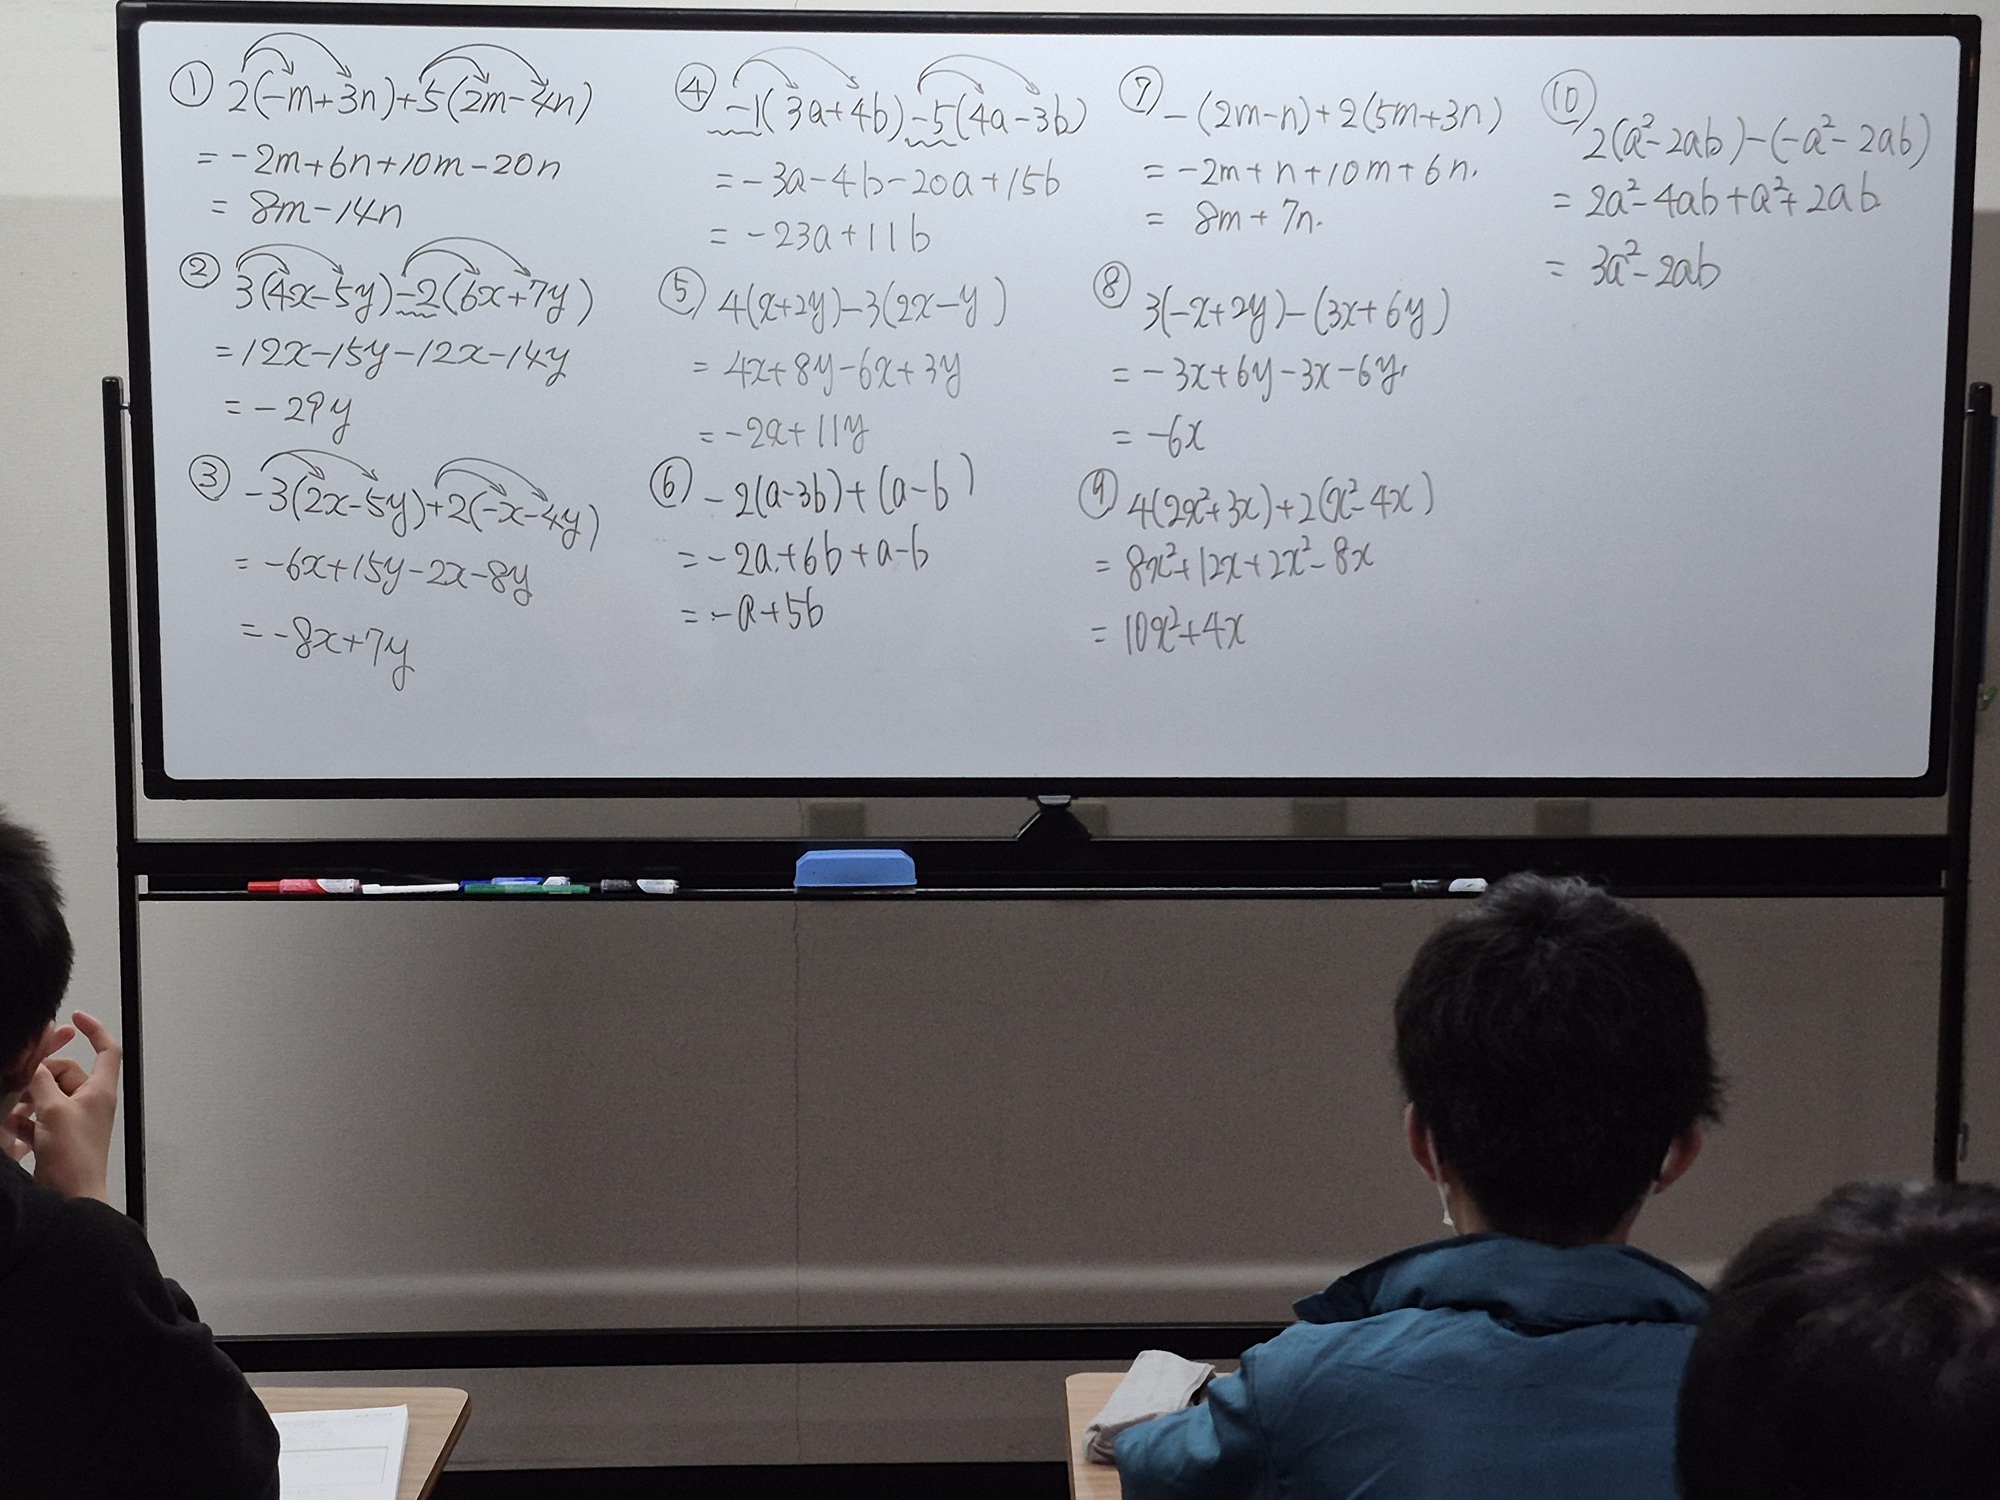 ① 2(-m+3n)+5(2m-4n)
= -2m+6n+10m-20n
= 8m-14n
② 3(4x-5y)-2(6x+7y)
= 12x-15y-12x-14y
= -29y
③ -3(2x-5y)+2(-x-4y)
= -6x+15y-2x-8y
= -8x+7y
④ -1(3a+4b)-5(4a-3b)
= -3a-4b-20a+15b
= -23a+11b
⑤ 4(x+2y)-3(2x-y)
= 4x+8y-6x+3y
= -2x+11y
⑥ -2(a-3b)+(a-b)
= -2a+6b+a-b
= -a+5b
⑦ -(2m-n)+2(5m+3n)
= -2m+n+10m+6n.
= 8m+7n.
⑧ 3(-x+2y)-(3x+6y)
= -3x+6y-3x-6y.
= -6x
⑨ 4(2x²+3x)+2(x²-4x)
= 8x²+12x+2x²-8x
= 10x²+4x
⑩ 2(a²-2ab)-(-a²-2ab)
= 2a²-4ab+a²+2ab
= 3a²-2ab